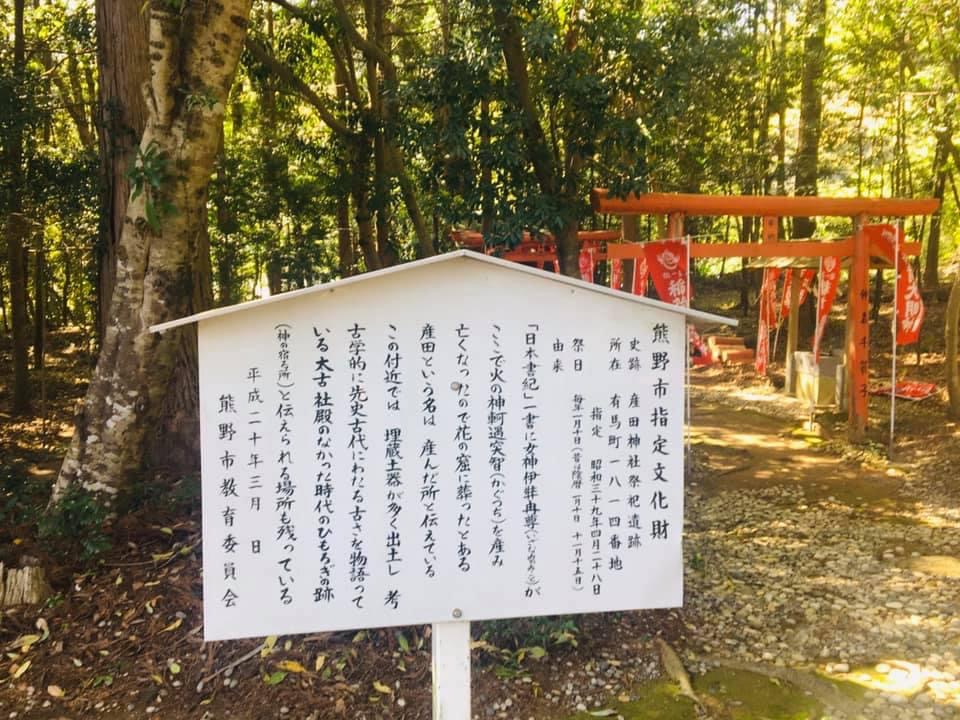 熊野市指定文化財
史跡 産田神社祭祀遺跡
所在 有馬町一八一四番地
指定 昭和三十九年四月二十八日
祭日 毎年一月十日(昔は陰暦一月十日 十一月十五日)
由来
「日本書紀」一書に女神伊弉冉尊(いざなみのみこと)が
ここで火の神軻遇突智(かぐつち)を産み
亡くなったので花の窟に葬ったとある
産田という名は 産んだ所と伝えている
この付近では 埋蔵土器が多く出土し 考
古学的に先史古代にわたる古さを物語って
いる 太古社殿のなかった時代のひもろぎの跡
(神の宿る所)と伝えられる場所も残っている
平成二十年三月 日
熊野市教育委員会
稲
大明神